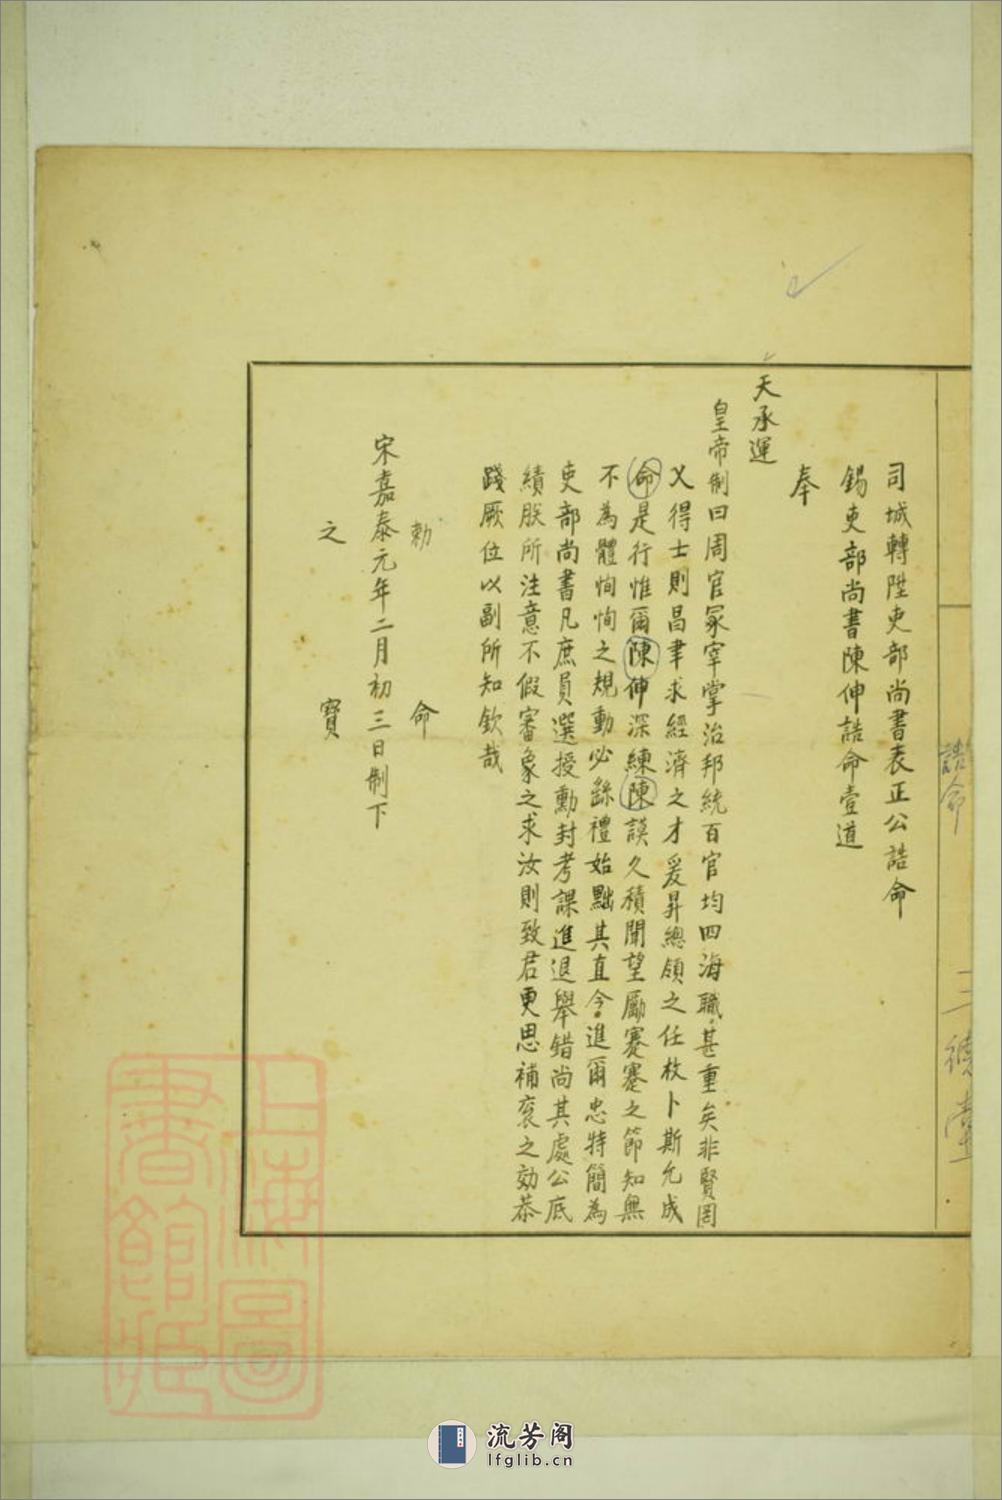 誥命
三德堂
司城轉陞吏部尚書表正公誥命
錫吏部尚書陳伸誥命壹道
奉
天承運
皇帝制曰周官冢宰掌治邦統百官均四海職甚重矣非賢罔
乂得士則昌聿求經濟之才爰昇總領之任枚卜斯允成
命是行惟爾陳伸深練陳謨久積聞望勵蹇蹇之節知無
不為體恂恂之規動必繇禮始黜其直今進爾忠特簡為
吏部尚書凡庶員選授勳封考課進退舉錯尚其處公底
績朕所注意不假審象之求汝則致君更思補袞之効恭
踐厥位以副所知欽哉
勅命
宋嘉泰元年二月初三日制下
之寶
上海圖
書館藏
流芳阁
lfglib.cn